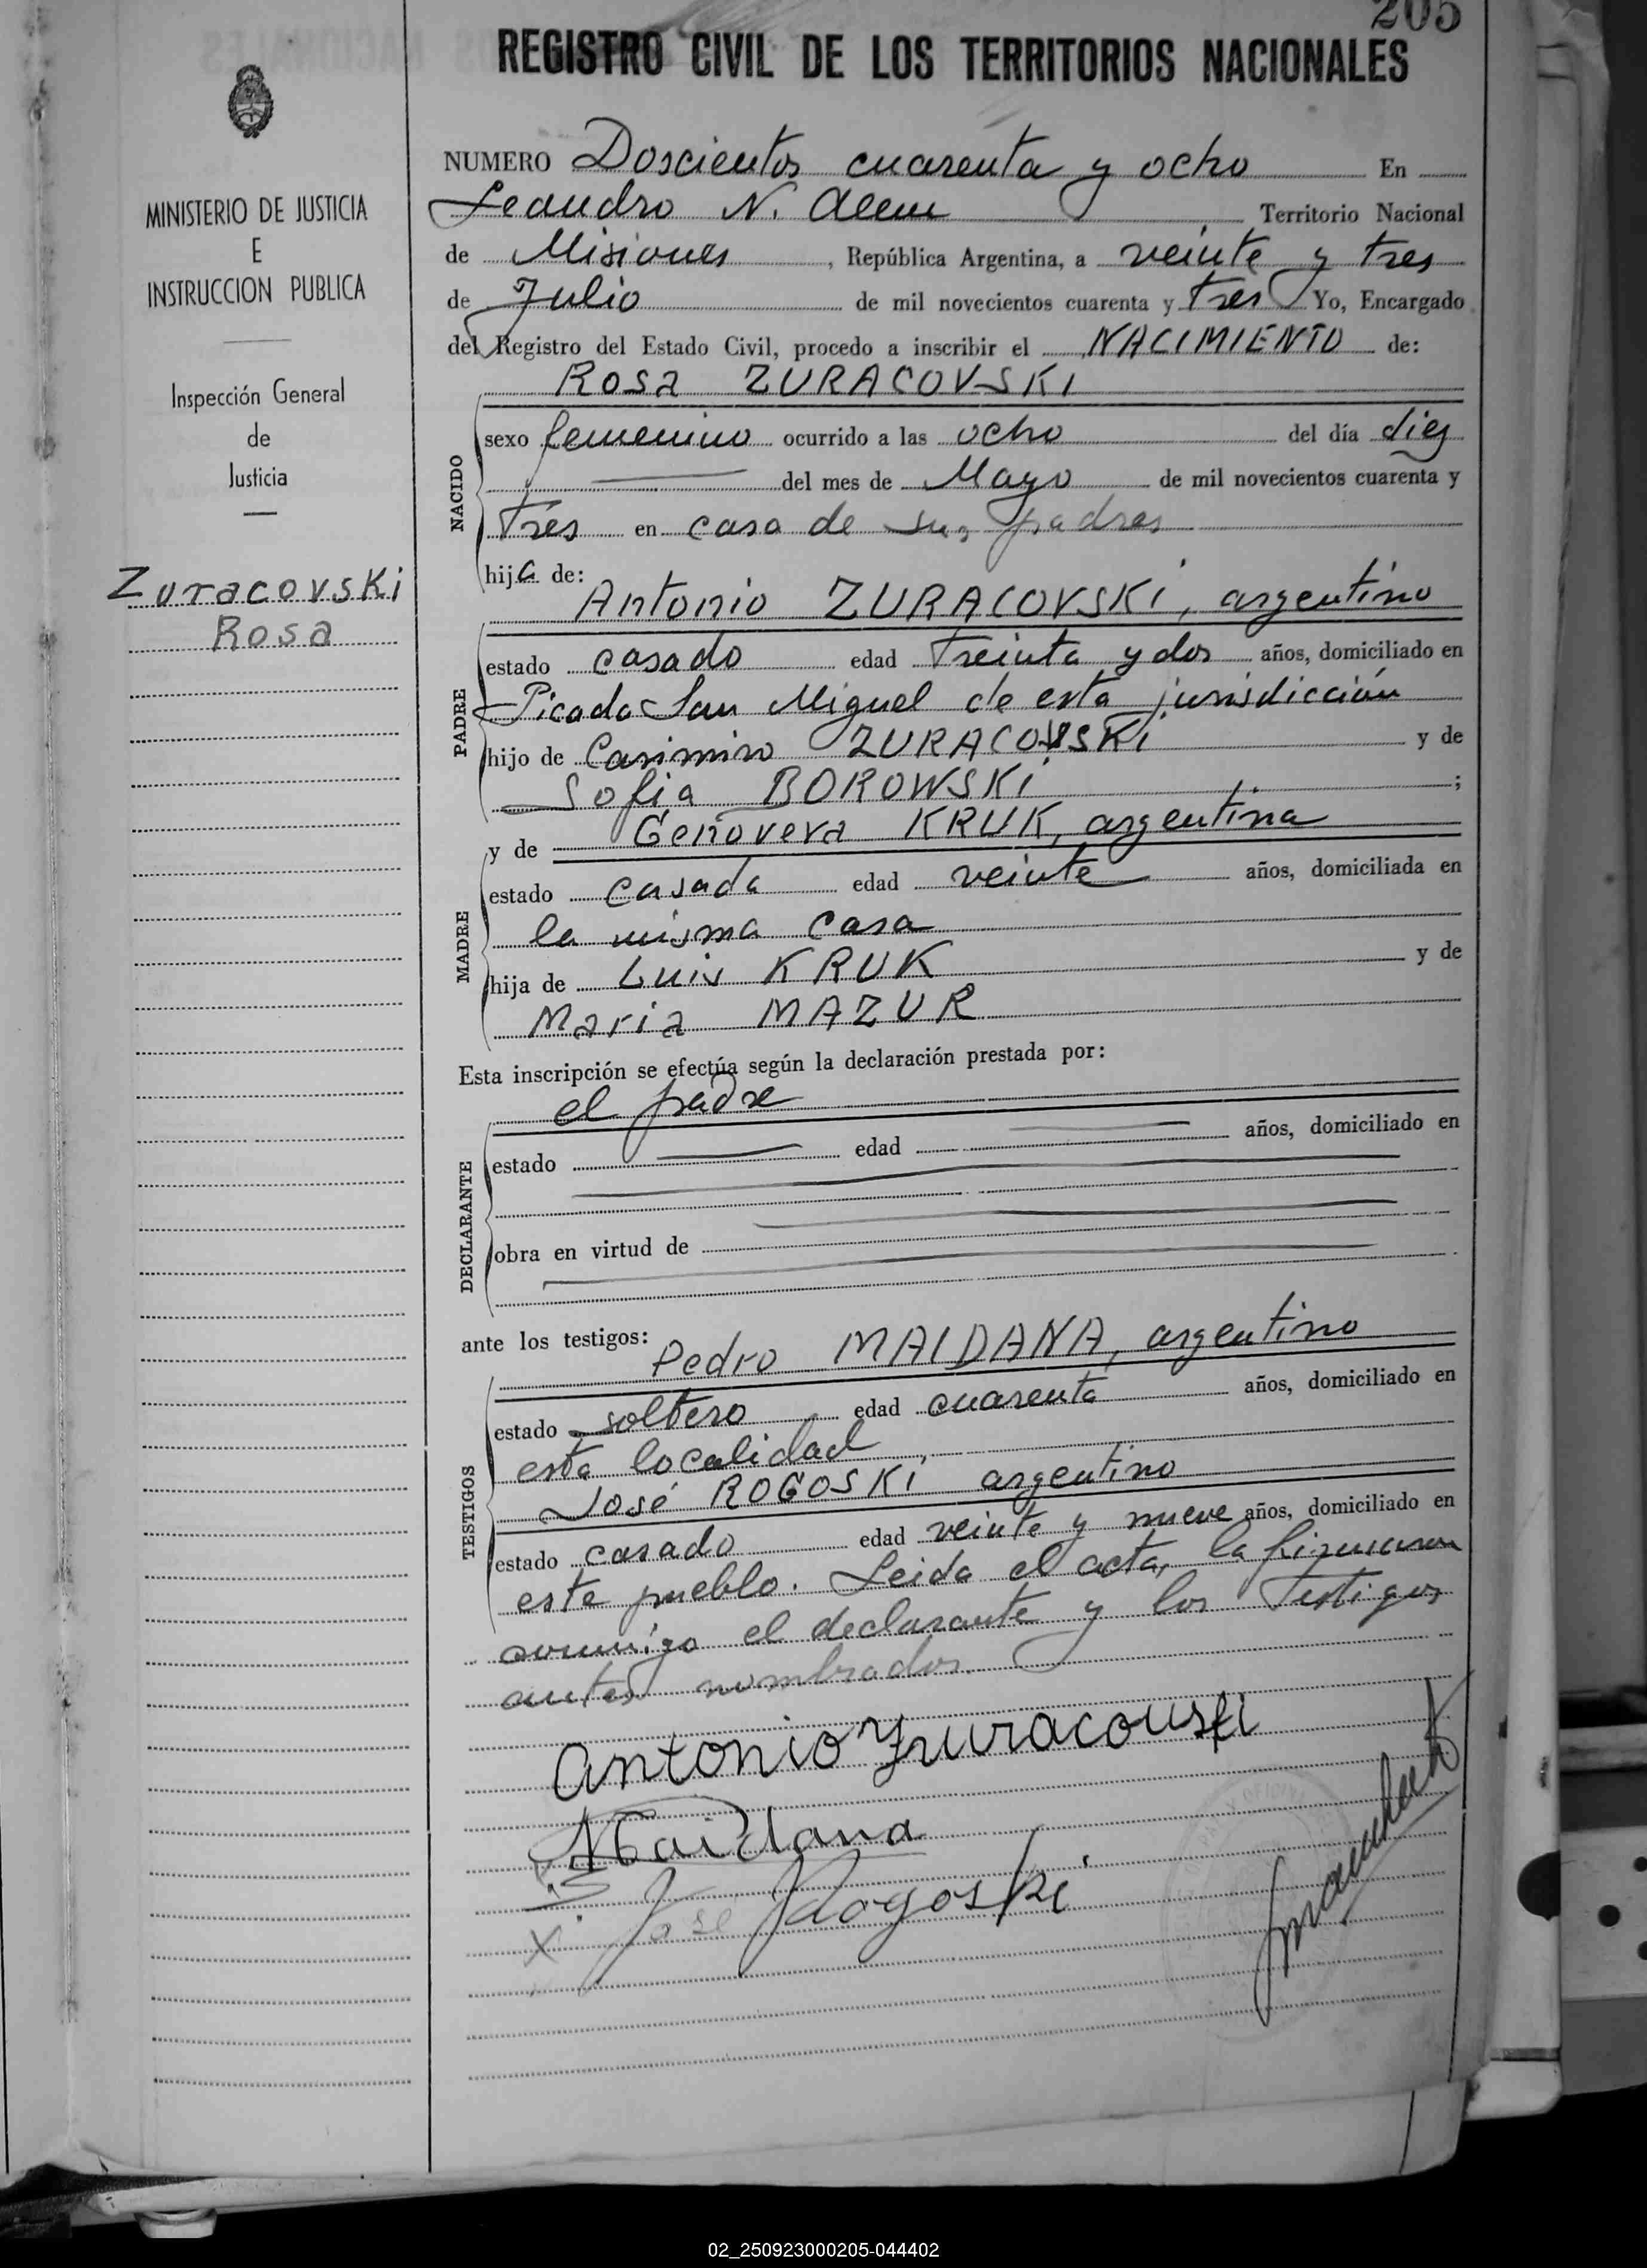 205
REGISTRO CIVIL DE LOS TERRITORIOS NACIONALES
MINISTERIO DE JUSTICIA
E
INSTRUCCION PUBLICA
Inspección General
de
Justicia
Zuracovski
Rosa
NUMERO Doscientos cuarenta y ocho En
Leandro N. Alem Territorio Nacional
de Misiones, República Argentina, a veinte y tres
de Julio de mil novecientos cuarenta y tres Yo, Encargado
del Registro del Estado Civil, procedo a inscribir el NACIMIENTO de:
Rosa ZURACOVSKI
NACIDO
sexo femenino ocurrido a las ocho del día diez
del mes de Mayo de mil novecientos cuarenta y
tres en casa de sus padres
hija de:
Antonio ZURACOVSKI, argentino
PADRE
estado casado edad treinta y dos años, domiciliado en
Picada San Miguel de esta jurisdicción
hijo de Casimiro ZURACOVSKI y de
Sofia BOROWSKI;
y de Genoveva KRUK, argentina
MADRE
estado casada edad veinte años, domiciliada en
la misma casa
hija de Luis KRUK y de
Maria MAZUR
Esta inscripción se efectúa según la declaración prestada por:
el padre
DECLARANTE
estado edad años, domiciliado en
obra en virtud de
ante los testigos:
Pedro MAIDANA, argentino
TESTIGOS
estado soltero edad cuarenta años, domiciliado en
esta localidad,
José ROGOSKI argentino
estado casado edad veinte y nueve años, domiciliado en
este pueblo. Leida el acta, la firmaron
conmigo el declarante y los testigos
antes nombrados.
Antonio Zuracouski
Maidana
José Rogoski
02_250923000205-044402